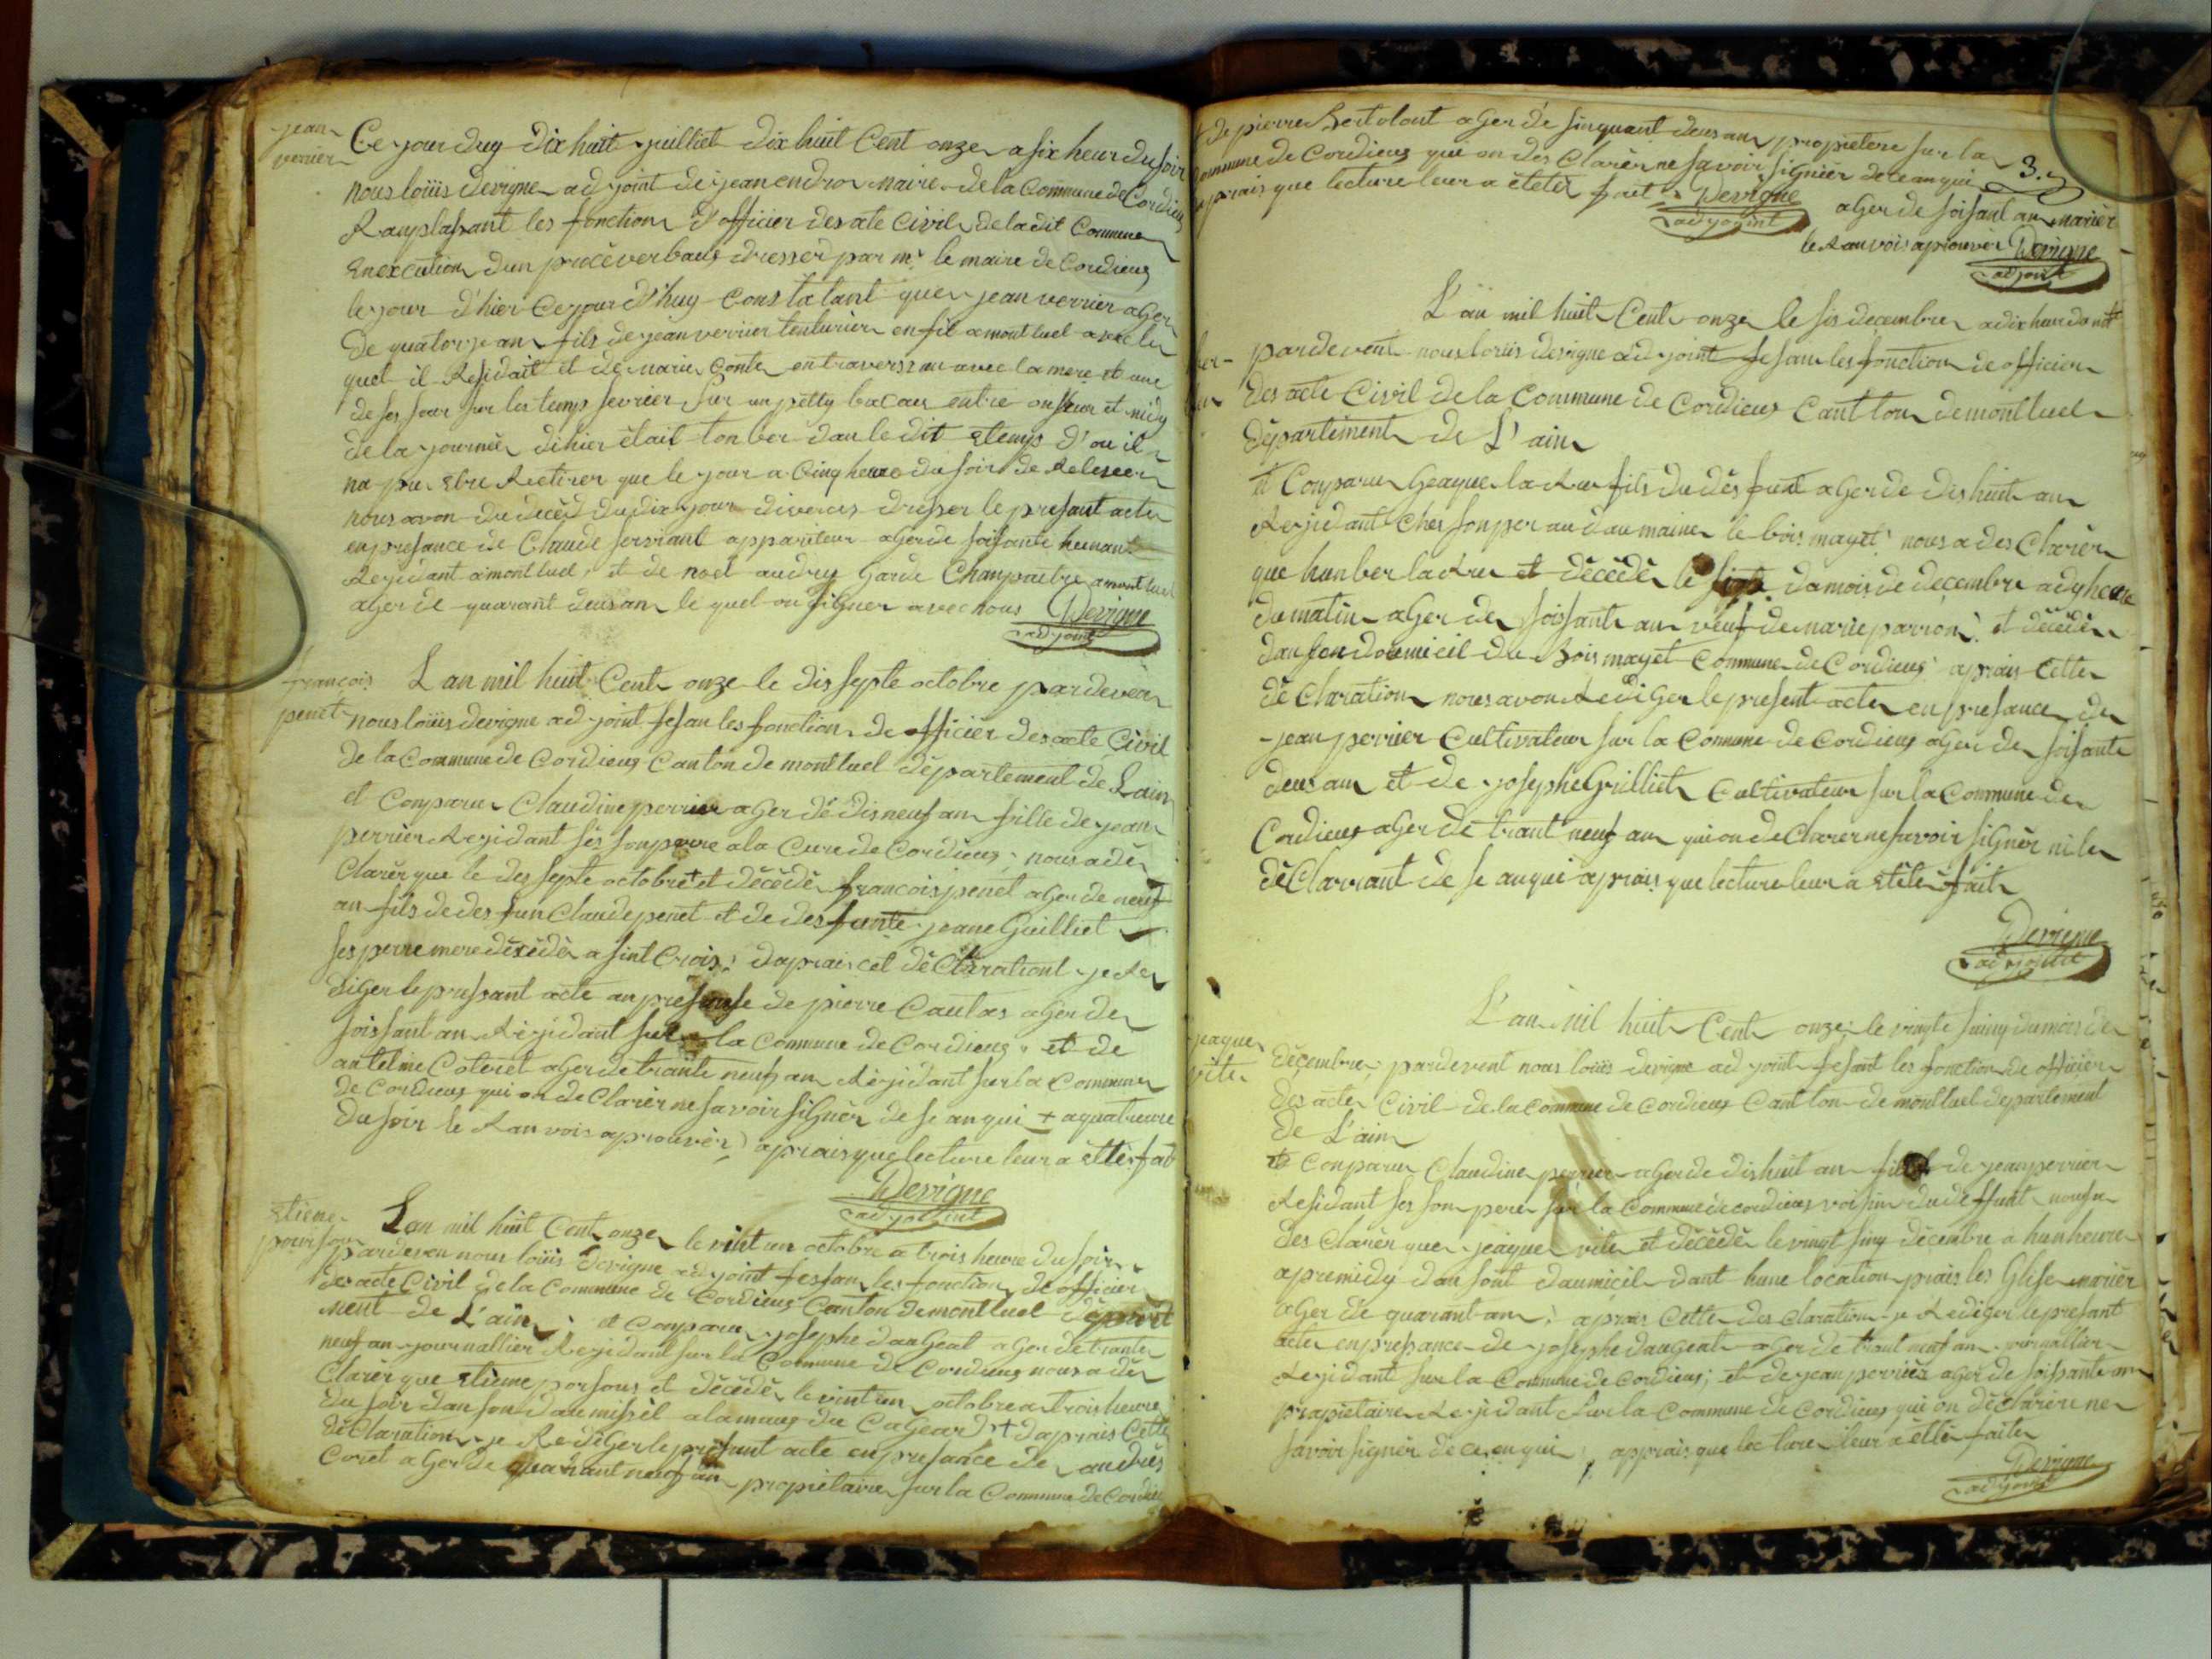 jean
verrier
Ce jour duy dix huit juilliet dix huit Cent onze a six heur du soir
nous loüis devigne adjoint de jean endro maire de la Commune de Cordieu
Ramplassant les fonction d'officier des ate Civil de la dit Commune
En execution dun procéverbaus dresser par mr le maire de Cordieus
le jour d'hier Ce jour d'huy Constatant que jean verrier ager
de quatorze an fils de jean verrier tenturier en fil a montluel avec le
quel il Residait et de marie Conte en traversean avec la mere et une
de ses sœur sur les temp sevrier sur un petty bacau entre onseur et midy
de la journéе dihier était tonber dan le dit Etemp d'ou il
na pu Etre Retirer que le jour a Cinq heure du soir de Relever
nous avon du décéd du dix jour divercis dresser le presant acte
en presance de Claude serviant appariteur ager de soisante hunant
Rezidant a montluel, et de noël audrey Garde Champaitre a montluel
ager de quarant deusan le quel on signer avec nous Devigne
adjoint
françois
penet
L an mil huit Cent onze le dis septe octobre pardevan
nous loüis devigne adjoint fesan les fonction de officier des acte Civil
de la Commune de Cordieus Canton de montluel département de Lain
et Conparu Claudine perrier ager de disneuf an fille de jean
perrier Rezidant ses son perre a la Cure de Cordieus; nous a dé
Clarér que le des septe octobre + et décédé francois penet ager de neuf
an fils de des fun Claude penet et de des funte jeane Guilliet
ses perre mere décédé a sint Crois: daprais cet déClarationt je Re
diGer le pressant acte an presanse de pierre Caulas ager de
soissant an Rézidant sur la Commune de Cordieus; et de
antelme Coteret ager de trante neuf an Rézidant sur la Commune
de Cordieus qui on de Clarér ne savoir siGnér de se an qui + a quatueure
du soir le Ranvois aprouvér aprais que lecture leur a étté fait
Devigne
adjoint
Etiene
poursou
Lan mil huit Cent onze le vint un octobre a trois heure du soir
pardevan nous loüis devigne adjoint fesan les fonction de officier
des acte Civil de la Commune de Cordieus Canton de montluel départ
ment de L'ain; et Conparu josephe dangeat ager de trante
neuf an journallier Rezidant sur la Commune de Cordieus nous a dé
Clarér que Etiene porsous et décédé le vint un octobre a trois heure
du soir dan son daumisil a la maus du CaGeard + daprais Cette
déClaration je RediGer le presant acte en presance de andrés
Coret ager de quarant neuf an propriétaire sur la Commune de Cordieu
+ de pierre Bertolont ager de sinquant deus an propietere sur la
Commune de Cordieus qui on des Clarér ne savoir siGniér de ce an qui
aprais que lecture leur a ététér fait Devigne
adjoint
3.
ager de soisant an mariér
le Ranvois aprouvér Devigne
adjoint
L'an mil huit Cent onze le sis decembre a dix heur du mat
pardevent nous loüis devigne adjoint fesan les fonction de officier
des acte Civil de la Commune de Cordieus Cantton de montluel
département de L'ain
et Conparu Geaque ladru fils du dés funt ager de dishuit an
Rezidant Ches son per au daumaine le bois mayet; nous a des Clarér
que hunber ladru et décédér le sixte du mois de decembre a dy heure
du matin ager de soissante an veuf de marie parrion; et décédér
dan son doemicil du Bois mayet Commune de Cordieus; aprais Cette
déClaration nous avon RediGer le present acte en presance de
jean perrier Cultivateur sur la Commune de Cordieus ager de soisante
deus an et de josephe Grilliet Cultivateur sur la Commune de
Cordieus ager de trant neuf an qui on de Clarer ne savoir siGnér ni le
déClarrant de se an qui aprais que lecture leur a Etéte fait
Devigne
adjoint
jeaque
vite
L'an mil huit Cent onze; le vingte sinq du mois de
décembre; pardevent nous loüis devigne adjoint fesant les fonction de officier
des acte Civil de la Commune de Cordieus Cantton de montluel département
de L'ain
et Conparu Claudine perrier ager de dishuit an fille de jean perrier
Residant ses son pere sur la Commune de cordieus voisin du deffunt nous a
des Clarér que jeaque vite et décédér le vingt sinq décembre a hun heure
apremidy dan sont daumicil dant hune location prais les Glise mariér
ager de quarant an; aprais Cette des Claration je Rediger le presant
acte en presance de josephe dangeat ager de trant neuf an journallier
Rezidant sur la Commune de Cordieus; et de jean perrier ager de soissante an
propietaire Rezidant sur la Commune de Cordieus qui on déClarér ne
savoir signér de ce en qui; apprais que lecture leur a étté faite
Devigne
adjoint